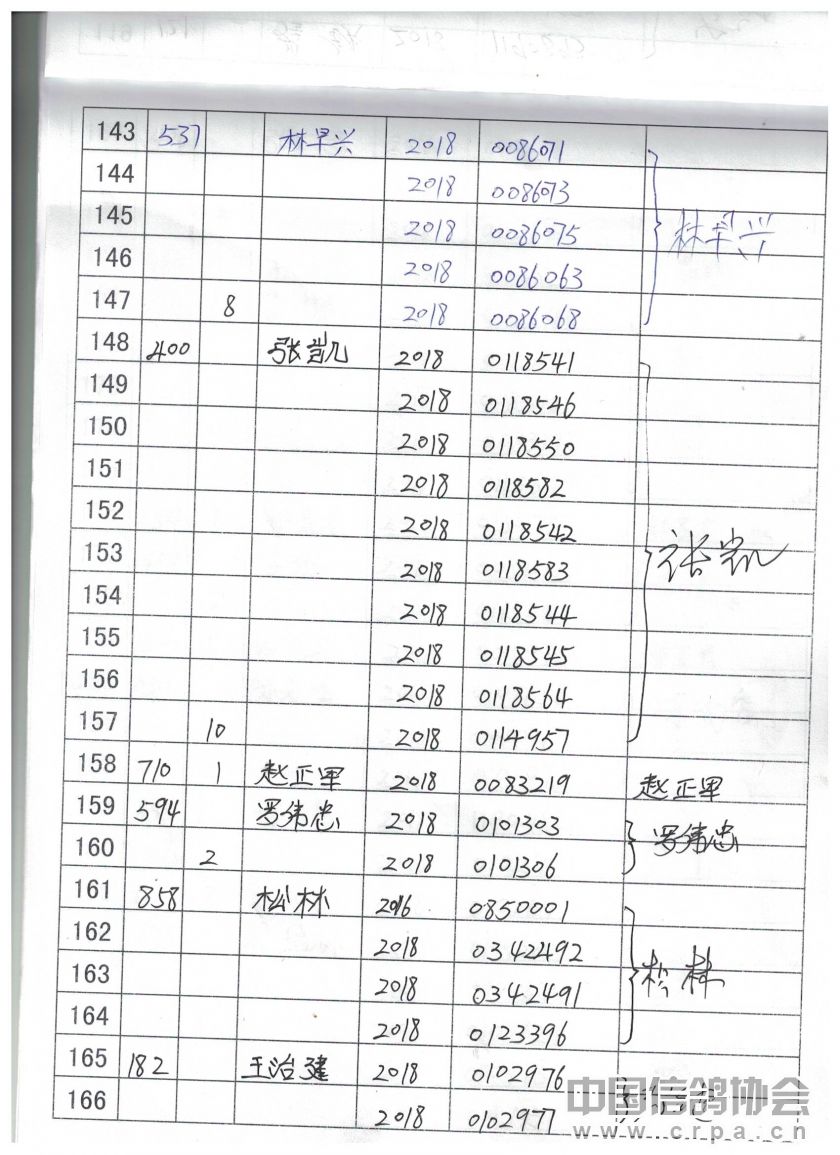 143 537 林早兴 2018 0086071
144 2018 0086073
145 2018 0086075 林早兴
146 2018 0086063
147 8 2018 0086068
148 400 张凯 2018 0118541
149 2018 0118546
150 2018 0118550
151 2018 0118582
152 2018 0118542
153 2018 0118583 张凯
154 2018 0118544
155 2018 0118545
156 2018 0118564
157 10 2018 0114957
158 710 1 赵正军 2018 0083219 赵正军
159 594 罗纬忠 2018 0101303 罗纬忠
160 2 2018 0101306
161 858 松林 2016 0850001
162 2018 0342492
163 2018 0342491 松林
164 2018 0123396
165 182 王治建 2018 0102976
166 2018 0102977
中国信鸽协会
www.crpa.cn